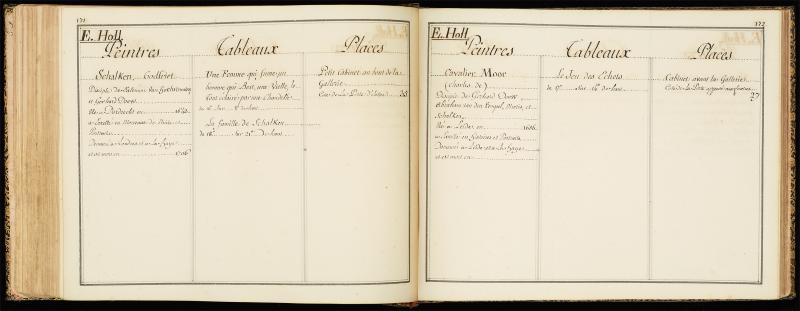 171
E. Holl
Peintres
Tableaux
Places
Schalken, Godefret
Disciple de Salomon Van
et Gerhard Douw
Né a Dordrecht en 1643
a Excellé en Morceaux de Nuits et
Portraits
Demeuré a Londres et a La Haye
et est mort en 1706
Une Femme qui fume, un
homme qui Boit, une Vielle, le
tout claire par une Chandelle
La famille de Schalken
Petit Cabinet au bout de la
Gallerie
Coté de La
E. Holl
Peintres
Tableaux
Places
Cavalier Moor
(Charles de)
Disciple de Gerhard Douw
Abraham van den Tempel, Mieris, et
Schalken
Né a Leiden en 1656
a Excellé en Histoires et Portraits
Demeuré a Leide et a La Haye
et est mort en
Le Jeu des Echets
Cabinet avant la Gallerie
27